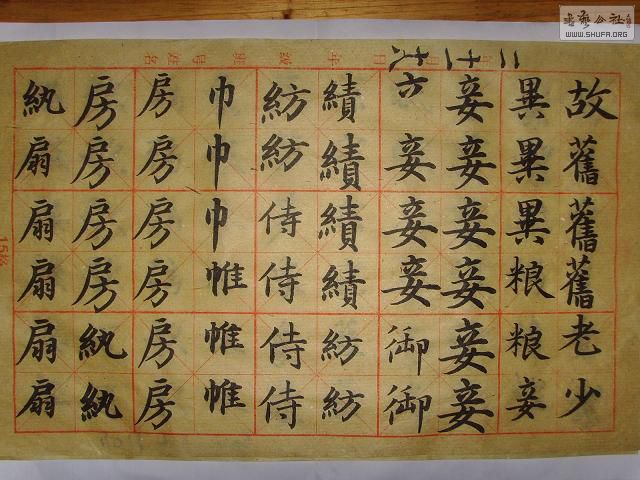 书艺公社
WWW.SHUFA.ORG
故舊舊舊老少
異異異粮粮妾
妾妾妾妾妾妾
六妾妾妾御御
績績績績紡紡
紡紡侍侍侍侍
巾巾巾帷帷帷
房房房房房房
房房房房紈紈
紈扇扇扇扇扇